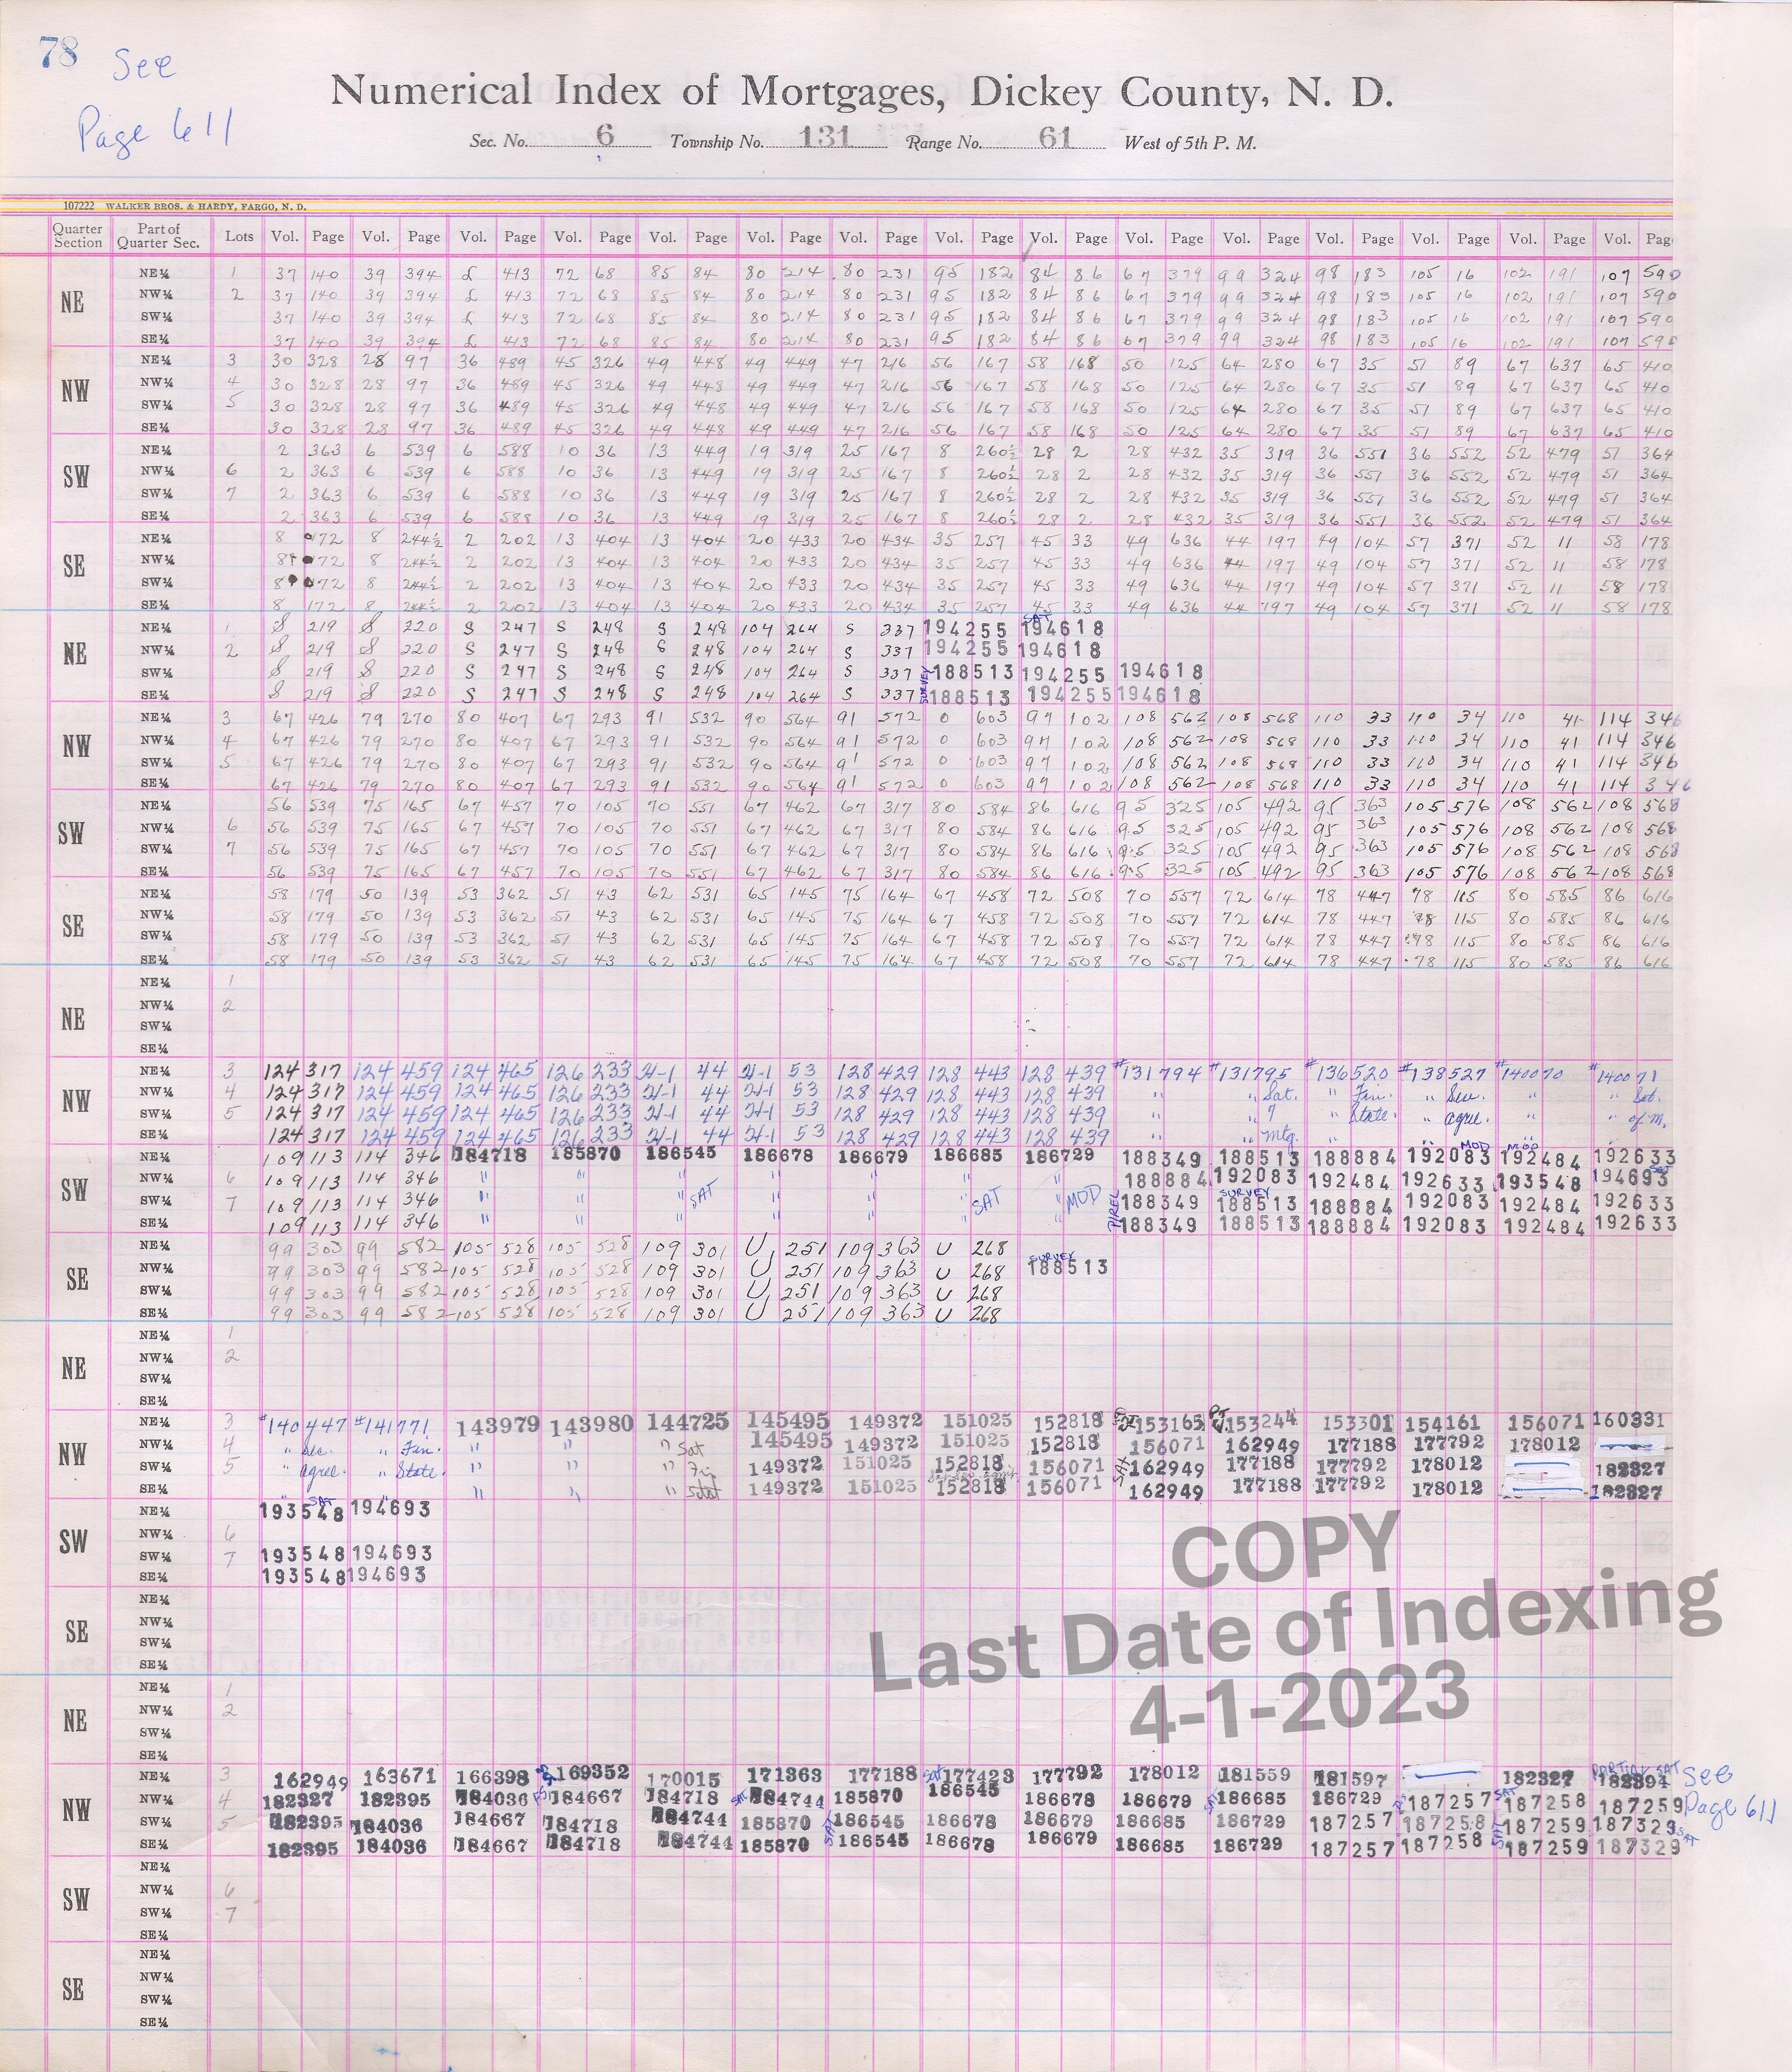 78 See
Page 611
Numerical Index of Mortgages, Dickey County, N. D.
Sec. No. 6 Township No. 131 Range No. 61 West of 5th P. M.
107222 WALKER BROS. & HARDY, FARGO, N. D.
Quarter Section Part of Quarter Sec. Lots Vol. Page Vol. Page Vol. Page Vol. Page Vol. Page Vol. Page Vol. Page Vol. Page Vol. Page Vol. Page Vol. Page Vol. Page Vol. Page Vol. Page Vol. Page
NE NE¼ 1 37 140 39 394 £ 413 72 68 85 84 80 214 80 231 95 182 84 86 67 379 99 324 98 183 105 16 102 191 107 590
NW¼ 2 37 140 39 394 £ 413 72 68 85 84 80 214 80 231 95 182 84 86 67 379 99 324 98 183 105 16 102 191 107 590
SW¼ 37 140 39 394 £ 413 72 68 85 84 80 214 80 231 95 182 84 86 67 379 99 324 98 183 105 16 102 191 107 590
SE¼ 37 140 39 394 £ 413 72 68 85 84 80 214 80 231 95 182 84 86 67 379 99 324 98 183 105 16 102 191 107 590
NW NE¼ 3 30 328 28 97 36 489 45 326 49 448 49 449 47 216 56 167 58 168 50 125 64 280 67 35 51 89 67 637 65 410
NW¼ 4 30 328 28 97 36 489 45 326 49 448 49 449 47 216 56 167 58 168 50 125 64 280 67 35 51 89 67 637 65 410
SW¼ 5 30 328 28 97 36 489 45 326 49 448 49 449 47 216 56 167 58 168 50 125 64 280 67 35 51 89 67 637 65 410
SE¼ 30 328 28 97 36 489 45 326 49 448 49 449 47 216 56 167 58 168 50 125 64 280 67 35 51 89 67 637 65 410
SW NE¼ 2 363 6 539 6 588 10 36 13 449 19 319 25 167 8 260½ 28 2 28 432 35 319 36 551 36 552 52 479 51 364
NW¼ 6 2 363 6 539 6 588 10 36 13 449 19 319 25 167 8 260½ 28 2 28 432 35 319 36 551 36 552 52 479 51 364
SW¼ 7 2 363 6 539 6 588 10 36 13 449 19 319 25 167 8 260½ 28 2 28 432 35 319 36 551 36 552 52 479 51 364
SE¼ 2 363 6 539 6 588 10 36 13 449 19 319 25 167 8 260½ 28 2 28 432 35 319 36 551 36 552 52 479 51 364
SE NE¼ 8 172 8 244½ 2 202 13 404 13 404 20 433 20 434 35 257 45 33 49 636 44 197 49 104 57 371 52 11 58 178
NW¼ 8 172 8 244½ 2 202 13 404 13 404 20 433 20 434 35 257 45 33 49 636 44 197 49 104 57 371 52 11 58 178
SW¼ 8 172 8 244½ 2 202 13 404 13 404 20 433 20 434 35 257 45 33 49 636 44 197 49 104 57 371 52 11 58 178
SE¼ 8 172 8 244½ 2 202 13 404 13 404 20 433 20 434 35 257 45 33 49 636 44 197 49 104 57 371 52 11 58 178
NE NE¼ 1 S 219 S 220 S 247 S 248 S 248 104 264 S 337 194255 SAT 194618
NW¼ 2 S 219 S 220 S 247 S 248 S 248 104 264 S 337 194255 194618
SW¼ S 219 S 220 S 247 S 248 S 248 104 264 S 337 SURVEY 188513 194255 194618
SE¼ S 219 S 220 S 247 S 248 S 248 104 264 S 337 188513 194255 194618
NW NE¼ 3 67 426 79 270 80 407 67 293 91 532 90 564 91 572 0 603 97 102 108 562 108 568 110 33 110 34 110 41 114 346
NW¼ 4 67 426 79 270 80 407 67 293 91 532 90 564 91 572 0 603 97 102 108 562 108 568 110 33 110 34 110 41 114 346
SW¼ 5 67 426 79 270 80 407 67 293 91 532 90 564 91 572 0 603 97 102 108 562 108 568 110 33 110 34 110 41 114 346
SE¼ 67 426 79 270 80 407 67 293 91 532 90 564 91 572 0 603 97 102 108 562 108 568 110 33 110 34 110 41 114 346
SW NE¼ 56 539 75 165 67 457 70 105 70 551 67 462 67 317 80 584 86 616 95 325 105 492 95 363 105 576 108 562 108 568
NW¼ 6 56 539 75 165 67 457 70 105 70 551 67 462 67 317 80 584 86 616 95 325 105 492 95 363 105 576 108 562 108 568
SW¼ 7 56 539 75 165 67 457 70 105 70 551 67 462 67 317 80 584 86 616 95 325 105 492 95 363 105 576 108 562 108 568
SE¼ 56 539 75 165 67 457 70 105 70 551 67 462 67 317 80 584 86 616 95 325 105 492 95 363 105 576 108 562 108 568
SE NE¼ 58 179 50 139 53 362 51 43 62 531 65 145 75 164 67 458 72 508 70 557 72 614 78 447 78 115 80 585 86 616
NW¼ 58 179 50 139 53 362 51 43 62 531 65 145 75 164 67 458 72 508 70 557 72 614 78 447 78 115 80 585 86 616
SW¼ 58 179 50 139 53 362 51 43 62 531 65 145 75 164 67 458 72 508 70 557 72 614 78 447 78 115 80 585 86 616
SE¼ 58 179 50 139 53 362 51 43 62 531 65 145 75 164 67 458 72 508 70 557 72 614 78 447 78 115 80 585 86 616
NE NE¼ 1
NW¼ 2
SW¼
SE¼
NW NE¼ 3 124 317 124 459 124 465 126 233 21-1 44 21-1 53 128 429 128 443 128 439 #131794 #131795 #136520 #138527 #140070 #140071
NW¼ 4 124 317 124 459 124 465 126 233 21-1 44 21-1 53 128 429 128 443 128 439 " " Sat. " Fin. " Sec. " " Sat.
SW¼ 5 124 317 124 459 124 465 126 233 21-1 44 21-1 53 128 429 128 443 128 439 " " " State. " agree. " " of m.
SE¼ 124 317 124 459 124 465 126 233 21-1 44 21-1 53 128 429 128 443 128 439 " " mtg. " " " "
SW NE¼ 109 113 114 346 184718 185870 186545 186678 186679 186685 186729 188349 188513 188884 192083 MOD 192484 MOD 192633
NW¼ 6 109 113 114 346 " " " " " " " 188884 192083 192484 192633 193548 194693 SAT
SW¼ 7 109 113 114 346 " " " SAT " " " SAT " MOD PREL 188349 SURVEY 188513 188884 192083 192484 192633
SE¼ 109 113 114 346 " " " " " " " 188349 188513 188884 192083 192484 192633
SE NE¼ 99 303 99 582 105 528 105 528 109 301 U 251 109 363 U 268
NW¼ 99 303 99 582 105 528 105 528 109 301 U 251 109 363 U 268 SURVEY 188513
SW¼ 99 303 99 582 105 528 105 528 109 301 U 251 109 363 U 268
SE¼ 99 303 99 582 105 528 105 528 109 301 U 251 109 363 U 268
NE NE¼ 1
NW¼ 2
SW¼
SE¼
NW NE¼ 3 #140447 #141771 143979 143980 144725 145495 149372 151025 152818 153165 153244 153301 154161 156071 160331
NW¼ 4 " Sec. " Fin. " " " Sat 145495 149372 151025 152818 156071 162949 177188 177792 178012
SW¼ 5 " agree. " State. " " " Fin 149372 151025 152818 156071 SAT 162949 177188 177792 178012 182327
SE¼ " " " " " Stat 149372 151025 152818 156071 162949 177188 177792 178012 182327
SW NE¼ 193548 SAT 194693
NW¼ 6
SW¼ 7 193548 194693
SE¼ 193548 194693
SE NE¼
NW¼
SW¼
SE¼
COPY
Last Date of Indexing
4-1-2023
NE NE¼ 1
NW¼ 2
SW¼
SE¼
NW NE¼ 3 162949 163671 166398 169352 170015 171363 177188 Sat 177423 177792 178012 181559 181597 182327 PARTIAL SAT 182394 See
NW¼ 4 182327 182395 184036 184667 184718 SAT 184744 185870 186545 186678 186679 SAT 186685 186729 187257 SAT 187258 187259 Page 611
SW¼ 5 182395 184036 184667 184718 184744 185870 SAT 186545 186678 186679 186685 186729 187257 187258 187259 187329
SE¼ 182395 184036 184667 184718 184744 185870 186545 186678 186679 186685 186729 187257 187258 SAT 187259 187329 SAT
SW NE¼
NW¼ 6
SW¼ 7
SE¼
SE NE¼
NW¼
SW¼
SE¼